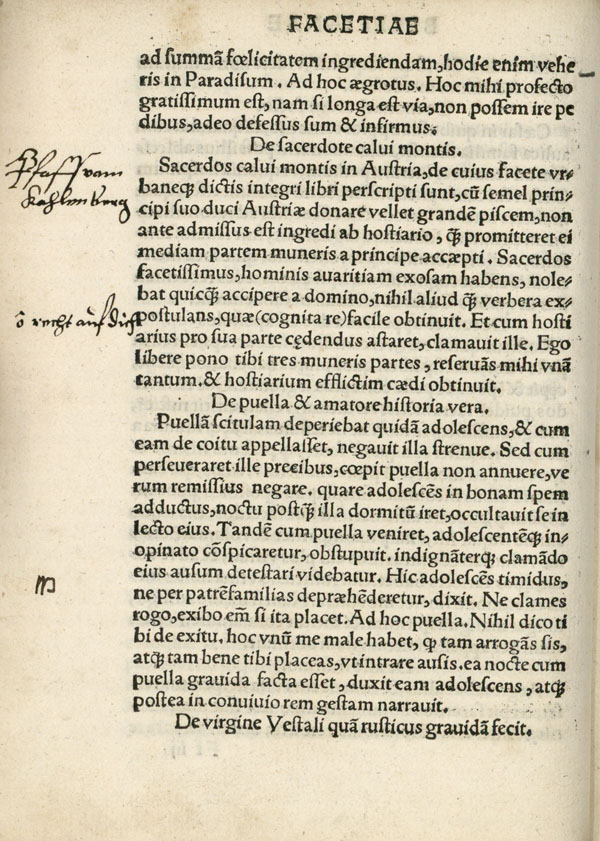 FACETIAE
ad summã fœlicitatem ingrediendam, hodie enim vehe
ris in Paradisum. Ad hoc ægrotus. Hoc mihi profecto
gratissimum est, nam si longa est via, non possem ire pe
dibus, adeo defessus sum & infirmus.
De sacerdote calui montis.
Sacerdos calui montis in Austria, de cuius facete vr-
baneqꝫ dictis integri libri perscripti sunt, cũ semel prin-
Pfaff vam
Kahlenberg
cipi suo duci Austriæ donare vellet grandẽ piscem, non
ante admissus est ingredi ab hostiario, qꝫ̃ promitteret ei
mediam partem muneris a principe accæpti. Sacerdos
facetissimus, hominis auaritiam exosam habens, nole-
bat quicqꝫ̃ accipere a domino, nihil aliud qꝫ̃ verbera ex-
ô recht auf dich
postulans, quæ (cognita re) facile obtinuit. Et cum hosti
arius pro sua parte cędendus astaret, clamauit ille. Ego
libere pono tibi tres muneris partes, reseruãs mihi vnã
tantum. & hostiarium efflictim cædi obtinuit.
De puella & amatore historia vera.
Puellã scitulam deperiebat quidã adolescens, & cum
eam de coitu appellasset, negauit illa strenue. Sed cum
perseueraret ille precibus, cœpit puella non annuere, ve
rum remissius negare. quare adolescẽs in bonam spem
adductus, noctu postqꝫ̃ illa dormitũ iret, occultauit se in
lecto eius. Tandẽ cum puella veniret, adolescentẽqꝫ in-
opinato cõspicaretur, obstupuit. indignãterqꝫ clamãdo
eius ausum detestari videbatur. Hic adolescẽs timidus,
ne per patrẽfamilias depræhẽderetur, dixit. Ne clames
rogo, exibo em̃ si ita placet. Ad hoc puella. Nihil dico ti
bi de exitu. hoc vnũ me male habet, qꝫ tam arrogãs sis,
atqꝫ tam bene tibi placeas, vt intrare ausis. ea nocte cum
puella grauida facta esset, duxit eam adolescens, atqꝫ
postea in conuiuio rem gestam narrauit.
De virgine Vestali quã rusticus grauidã fecit.